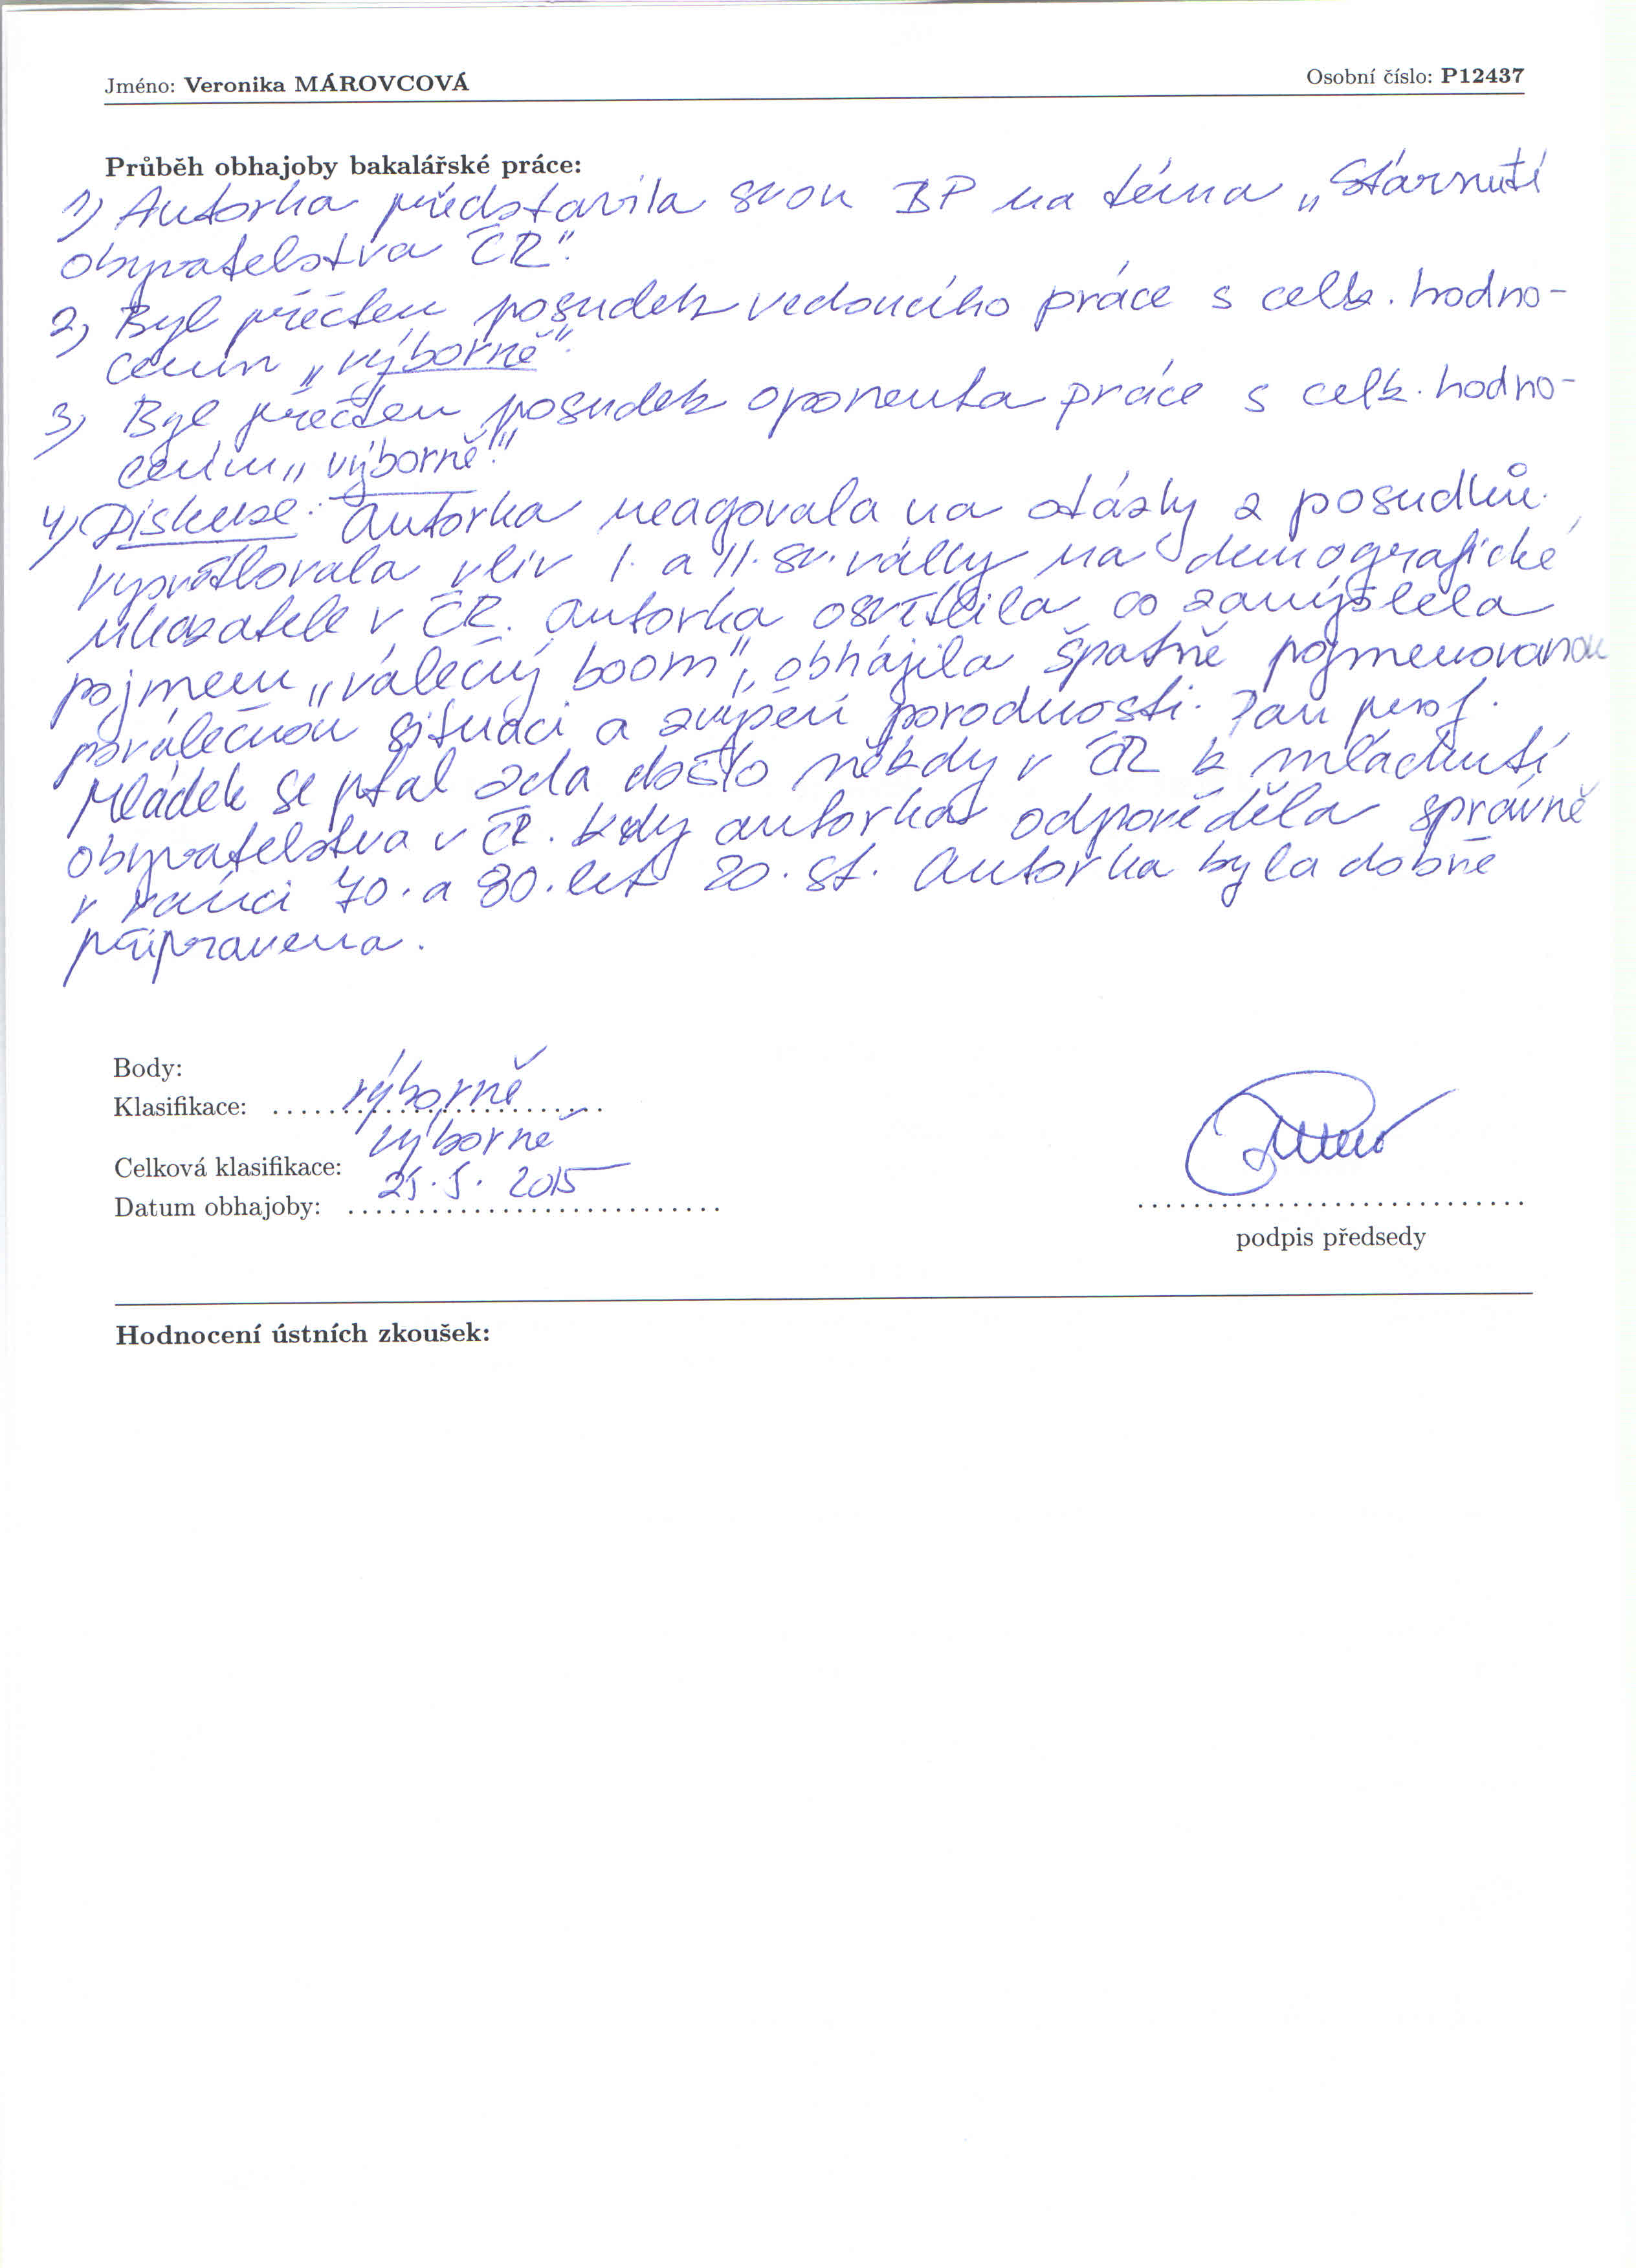 Jméno: Veronika MÁROVCOVÁ
Osobní číslo: P12437
Průběh obhajoby bakalářské práce:
1) Autorka představila svou BP na téma „Stárnutí
obyvatelstva ČR".
2) Byl přečten posudek vedoucího práce s celk. hodno-
cením „výborně".
3) Byl přečten posudek oponenta práce s celk. hodno-
cením „výborně!"
4) Diskuse: autorka reagovala na otázky z posudků.
vysvětlovala vliv I. a II. sv. války na demografické
ukazatele v ČR. autorka osvětlila co zamýšlela
pojmem „válečný boom", obhájila špatně pojmenovanou
poválečnou situaci a zvýšení porodnosti. Pan prof.
Mládek se ptal zda došlo někdy v ČR k mládnutí
obyvatelstva v ČR. kdy autorka odpověděla správně
v rámci 70. a 80. let 20. st. Autorka byla dobře
připravena.
Body:
Klasifikace: výborně
výborně
Celková klasifikace:
25. 5. 2015
Datum obhajoby:
podpis předsedy
Hodnocení ústních zkoušek: